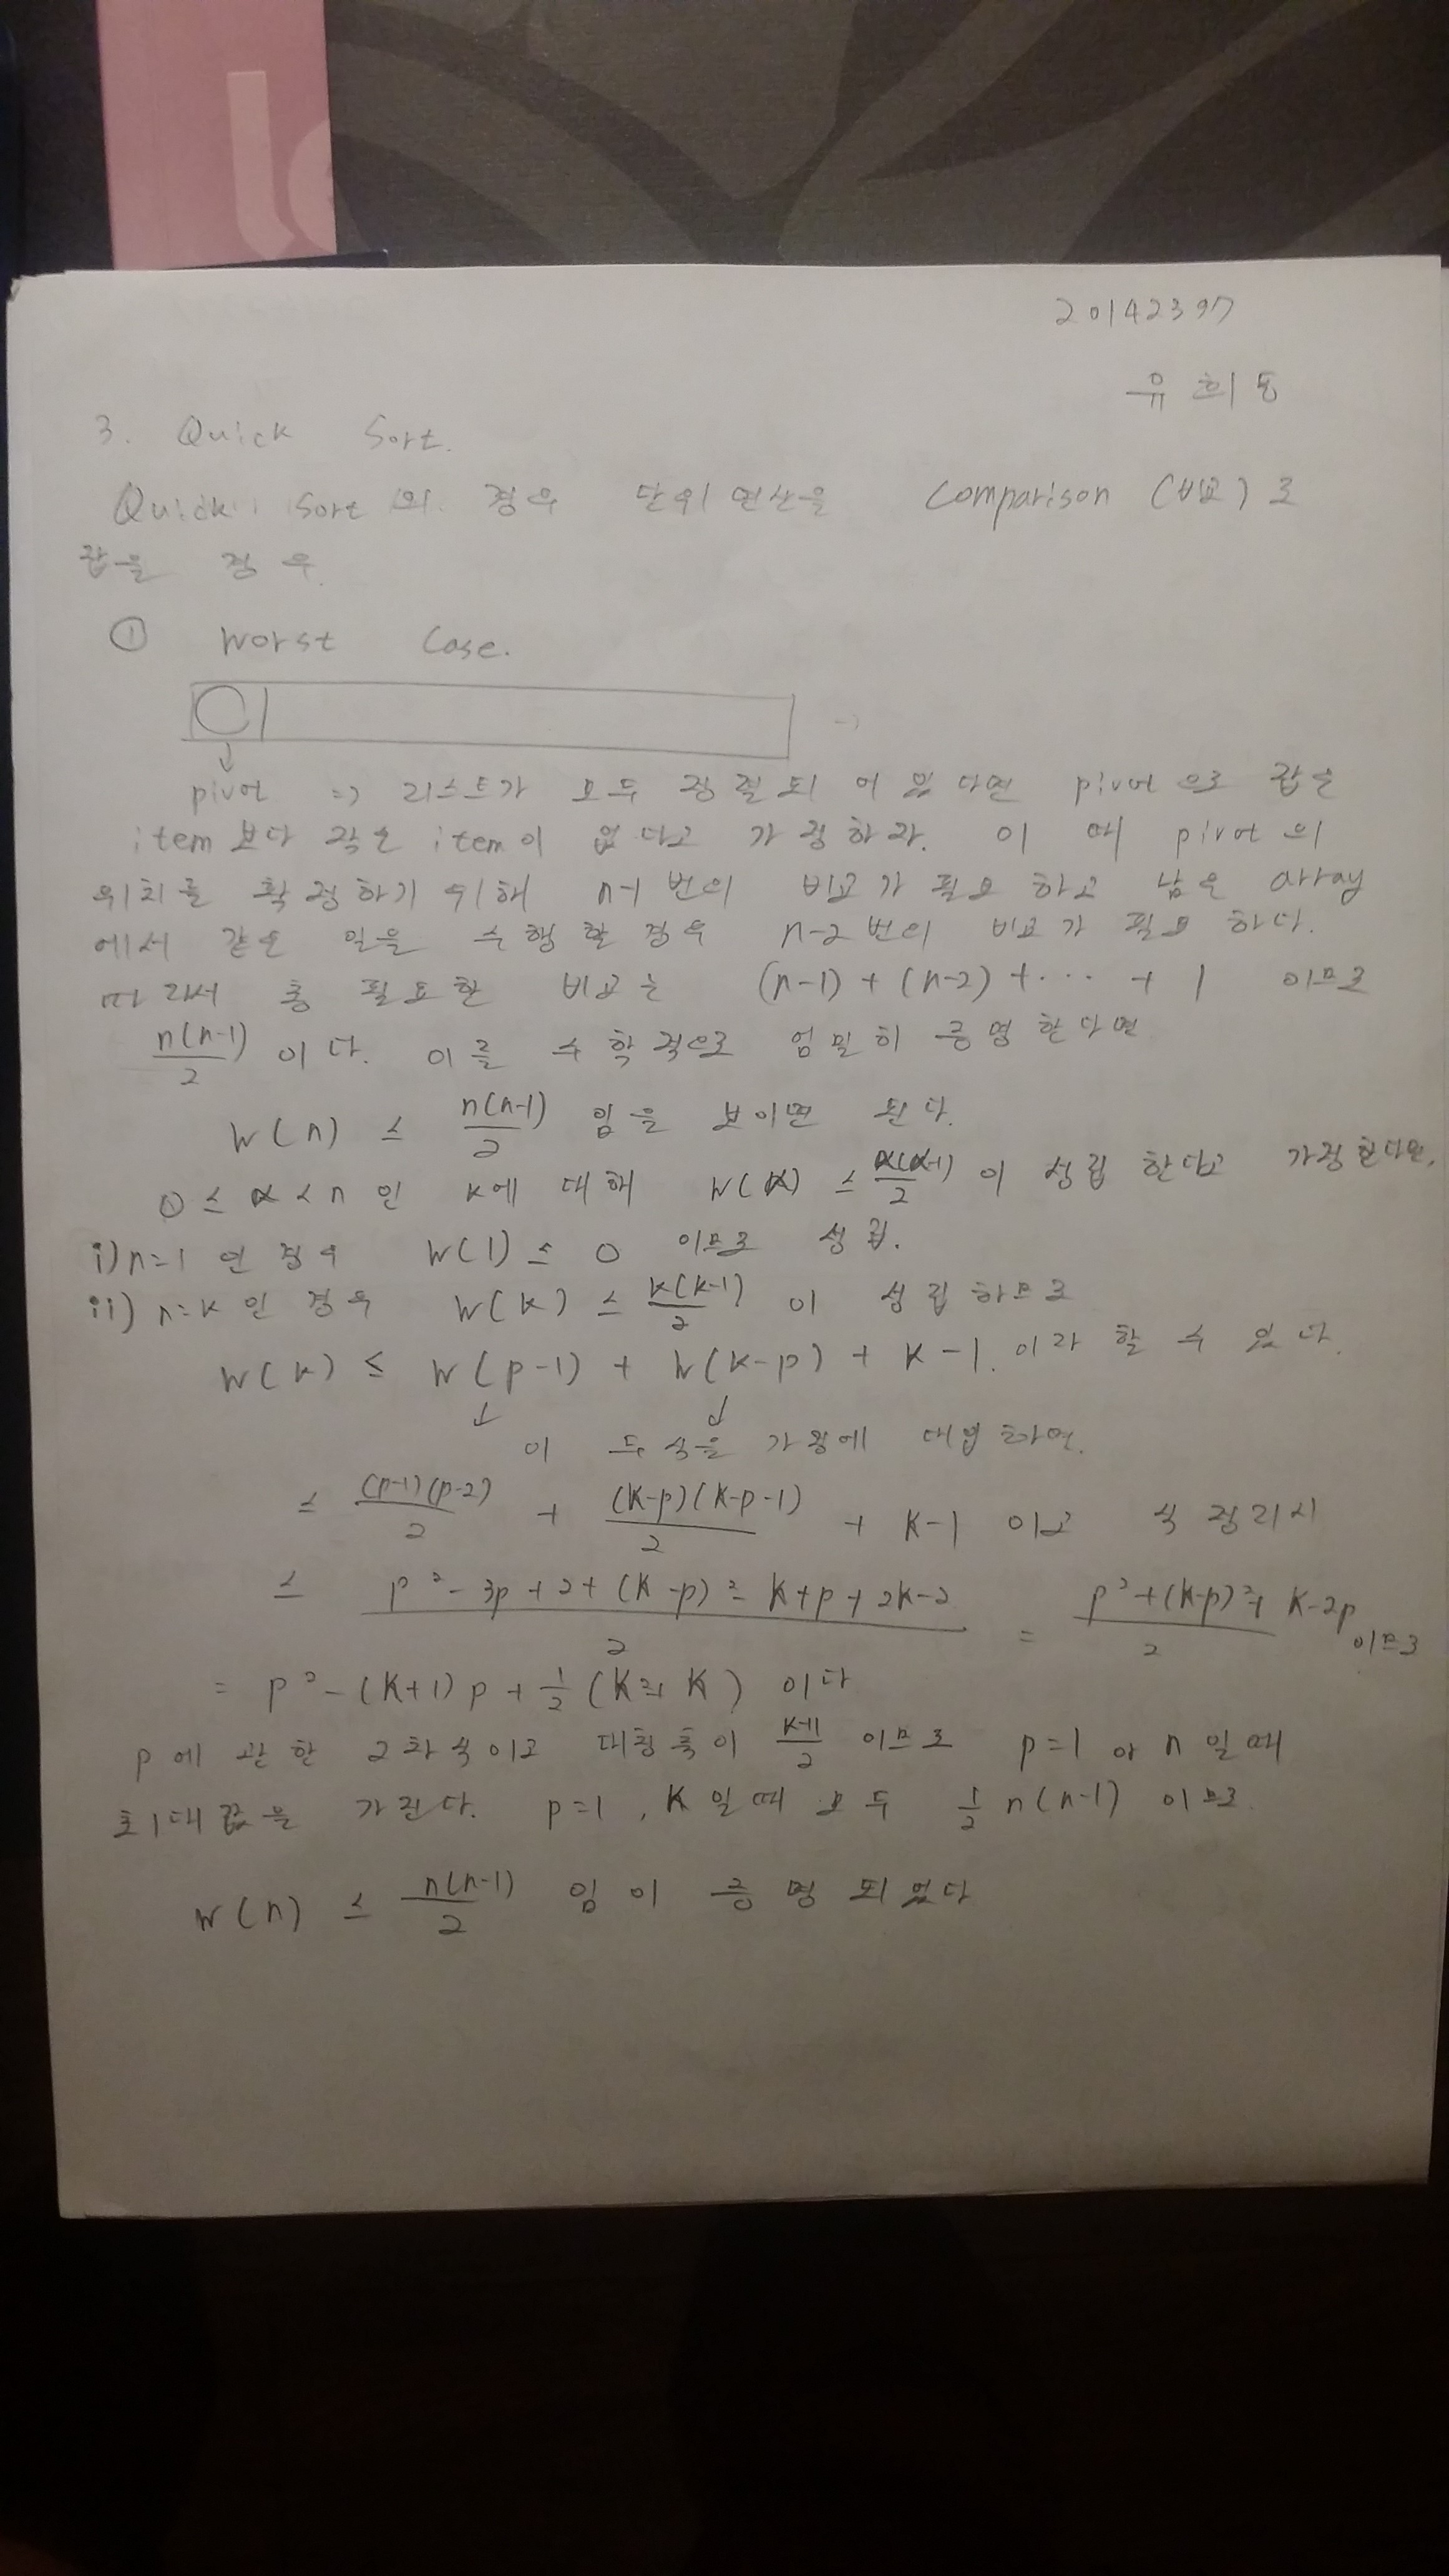 20142397
유희동
3. Quick Sort.
Quick Sort의 경우 단위연산을 Comparison (비교)로
잡을 경우.
① Worst Case.
pivot => 리스트가 모두 정렬되어 있다면 pivot으로 잡은
item보다 작은 item이 없다고 가정하라. 이 때 pivot의
위치를 확정하기 위해 n-1번의 비교가 필요하고 남은 array
에서 같은 일을 수행할 경우 n-2번의 비교가 필요하다.
따라서 총 필요한 비교는 (n-1) + (n-2) + ... + 1 이므로
n(n-1)/2 이다. 이를 수학적으로 엄밀히 증명한다면
W(n) ≤ n(n-1)/2 임을 보이면 된다.
0 ≤ α < n 인 k에 대해 W(α) ≤ α(α-1)/2 이 성립한다고 가정한다면,
i) n=1 인 경우 W(1) ≤ 0 이므로 성립.
ii) n=k인 경우 W(k) ≤ k(k-1)/2 이 성립하므로
W(k) ≤ W(p-1) + W(k-p) + k-1. 이라 할 수 있다.
이 두 식을 가정에 대입하면.
≤ (p-1)(p-2)/2 + (k-p)(k-p-1)/2 + k-1 이고 식 정리시
≤ (p²-3p+2+(k-p)²-k+p+2k-2)/2 = (p²+(k-p)²+k-2p)/2 이므로
= p²-(k+1)p+1/2(k²+k) 이다
p에 관한 2차식이고 대칭축이 (k+1)/2 이므로 p=1 or n일때
최대값을 가진다. p=1, k일때 모두 1/2 n(n-1) 이므로.
W(n) ≤ n(n-1)/2 임이 증명되었다